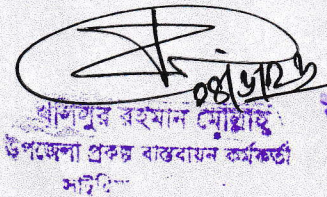 ০৪/১/২৩
রহমান মোল্লাহ
উপজেলা প্রকল্প বাস্তবায়ন কর্মকর্তা